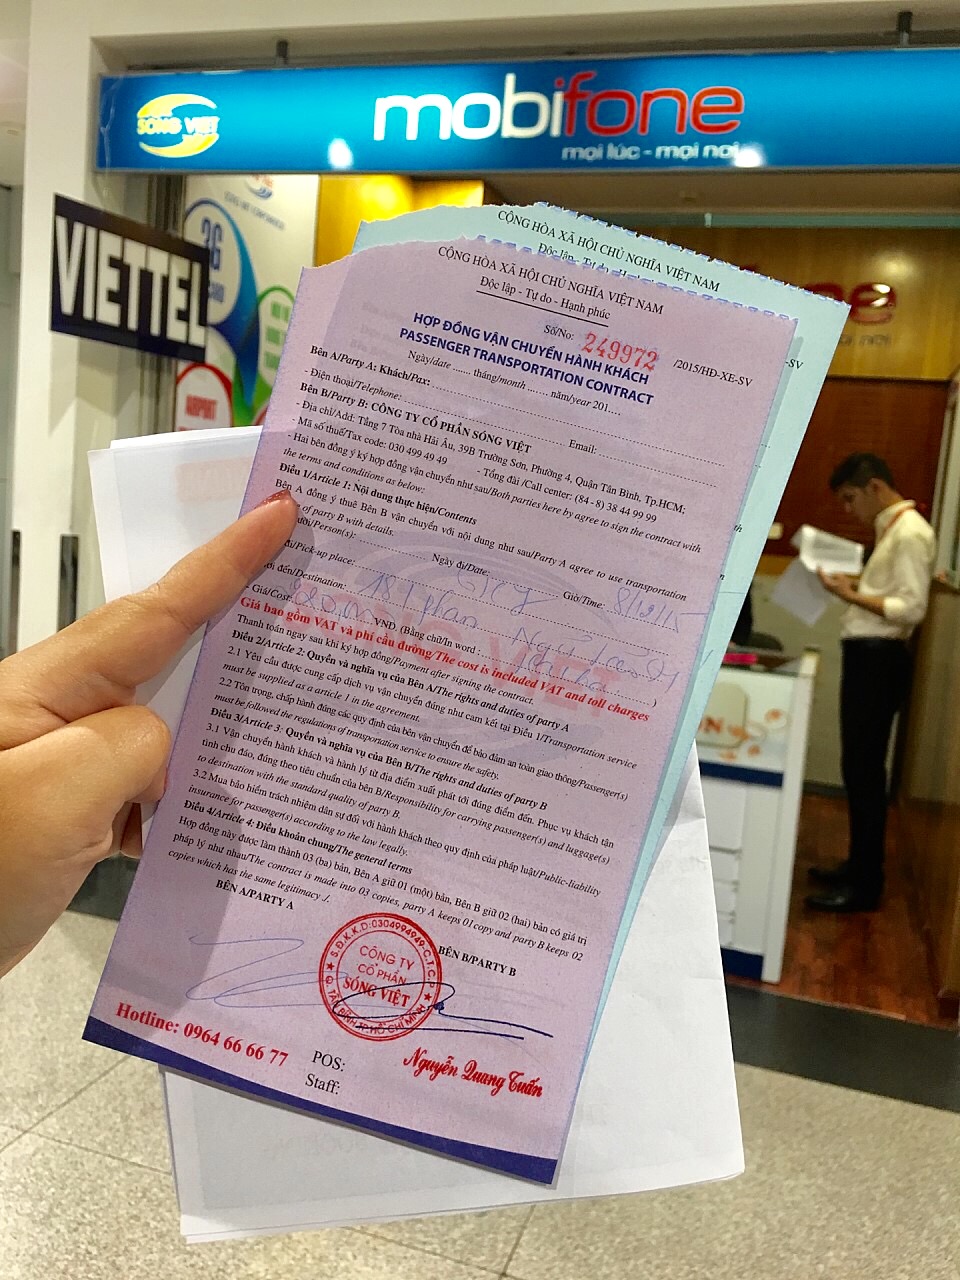 SÓNG VIỆT
mobifone
mọi lúc - mọi nơi
VIETTEL
3G
AIRPORT
CỘNG HÒA XÃ HỘI CHỦ NGHĨA VIỆT NAM
Độc lập - Tự do - Hạnh
/2015/HĐ-XE-SV
CỘNG HÒA XÃ HỘI CHỦ NGHĨA VIỆT NAM
Độc lập - Tự do - Hạnh phúc
Số/No: 249972 /2015/HĐ-XE-SV
HỢP ĐỒNG VẬN CHUYỂN HÀNH KHÁCH
PASSENGER TRANSPORTATION CONTRACT
Ngày/date ....... tháng/month ....... năm/year 201....
Bên A/Party A: Khách/Pax:
- Điện thoại/Telephone: Email:
Bên B/Party B: CÔNG TY CỔ PHẦN SÓNG VIỆT
- Địa chỉ/Add: Tầng 7 Tòa nhà Hải Âu, 39B Trường Sơn, Phường 4, Quận Tân Bình, Tp.HCM;
- Mã số thuế/Tax code: 030 499 49 49 - Tổng đài /Call center: (84 - 8) 38 44 99 99
- Hai bên đồng ý ký hợp đồng vận chuyển như sau/Both parties here by agree to sign the contract with
the terms and conditions as below:
Điều 1/Article 1: Nội dung thực hiện/Contents
Bên A đồng ý thuê Bên B vận chuyển với nội dung như sau/Party A agree to use transportation
of party B with details.
Person(s): Ngày đi/Date: Giờ/Time: 8/12/15
đi/Pick-up place: SGN
đến/Destination: 181 Phan Ngữ
- Giá/Cost: 220,000 VND. (Bằng chữ/In word : )
Giá bao gồm VAT và phí cầu đường/The cost is included VAT and toll charges
Thanh toán ngay sau khi ký hợp đồng/Payment after signing the contract.
Điều 2/Article 2: Quyền và nghĩa vụ của Bên A/The rights and duties of party A
2.1 Yêu cầu được cung cấp dịch vụ vận chuyển đúng như cam kết tại Điều 1/Transportation service
must be supplied as a article 1 in the agreement.
2.2 Tôn trọng, chấp hành đúng các quy định của bên vận chuyển để bảo đảm an toàn giao thông/Passenger(s)
must be followed the regulations of transportation service to ensure the safety.
Điều 3/Article 3: Quyền và nghĩa vụ của Bên B/The rights and duties of party B
3.1 Vận chuyển hành khách và hành lý từ địa điểm xuất phát tới đúng điểm đến. Phục vụ khách tận
tình chu đáo, đúng theo tiêu chuẩn của bên B/Responsibility for carrying passenger(s) and luggage(s)
to destination with the standard quality of party B.
3.2 Mua bảo hiểm trách nhiệm dân sự đối với hành khách theo quy định của pháp luật/Public-liability
insurance for passenger(s) according to the law legally.
Điều 4/Article 4: Điều khoản chung/The general terms
Hợp đồng này được làm thành 03 (ba) bản, Bên A giữ 01 (một) bản, Bên B giữ 02 (hai) bản có giá trị
pháp lý như nhau/The contract is made into 03 copies, party A keeps 01 copy and party B keeps 02
copies which has the same legitimacy ./.
BÊN A/PARTY A
BÊN B/PARTY B
S.Đ.K.K.D:0304994949-C.T.C.P
CÔNG TY
CỔ PHẦN
SÓNG VIỆT
Q. TÂN BÌNH TP.HỒ CHÍ MINH
Hotline: 0964 66 66 77
POS:
Staff:
Nguyễn Quang Tuấn